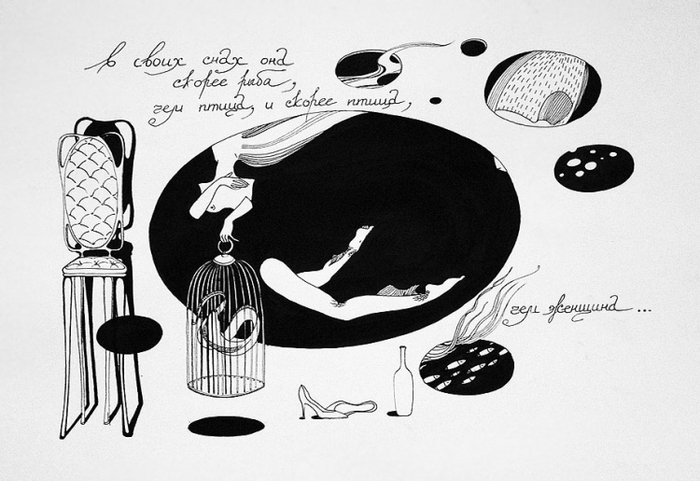 в своих снах она
скорее рыба,
чем птица, и скорее птица,
чем женщина ...